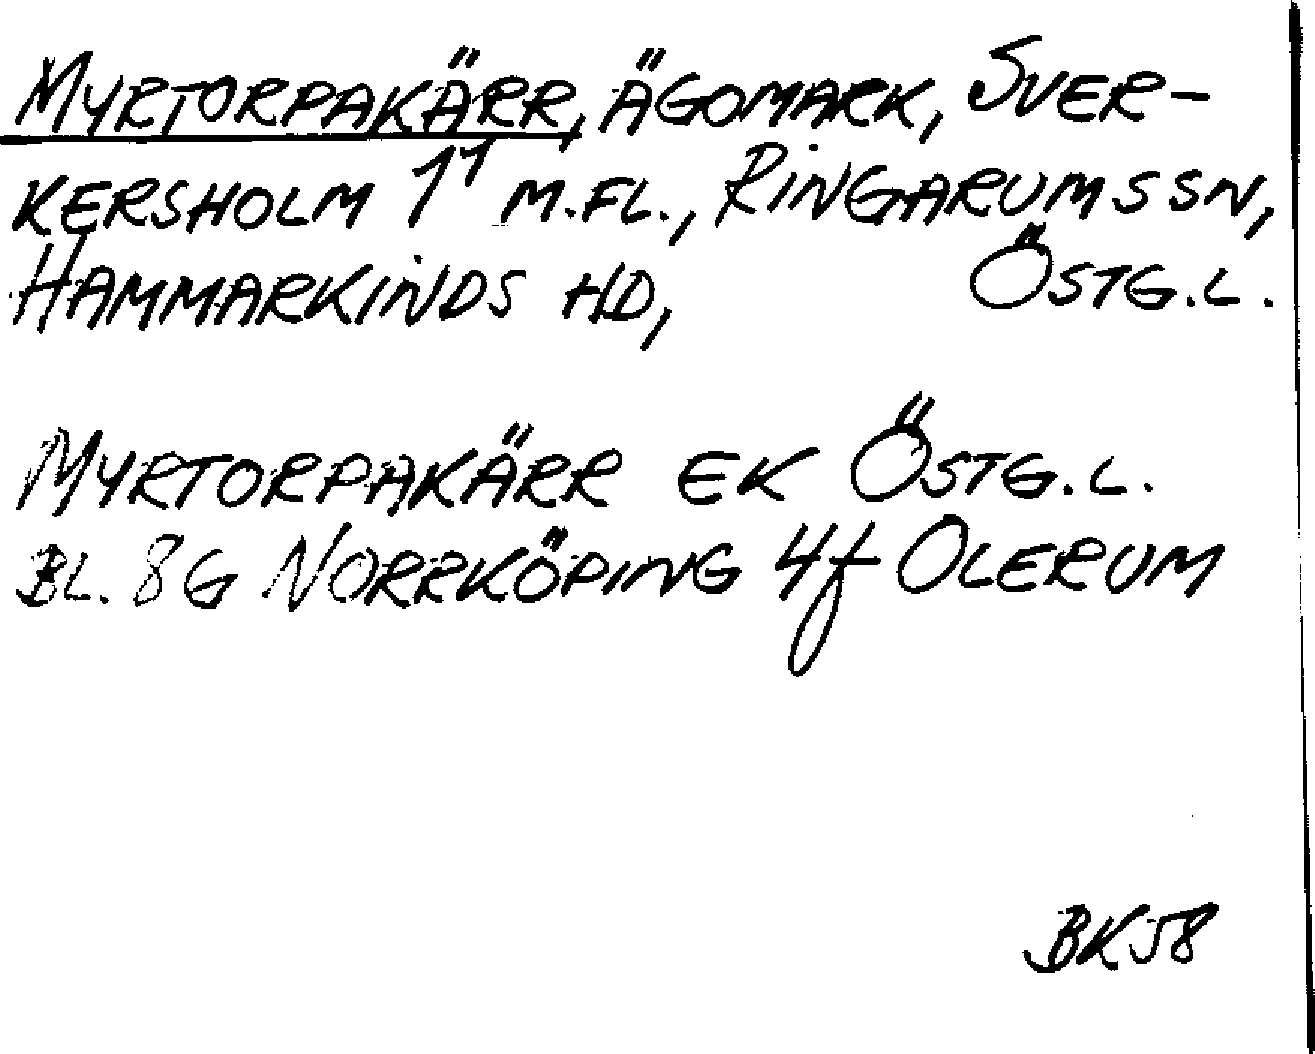 MYRTORPAKÄRR, ÄGOMARK, SVER-
KERSHOLM 1¹ M.FL., RINGARUMS SN,
HAMMARKINDS HD, ÖSTG.L.
MYRTORPAKÄRR EK ÖSTG.L.
BL. 8G NORRKÖPING 4f OLERUM
BK58